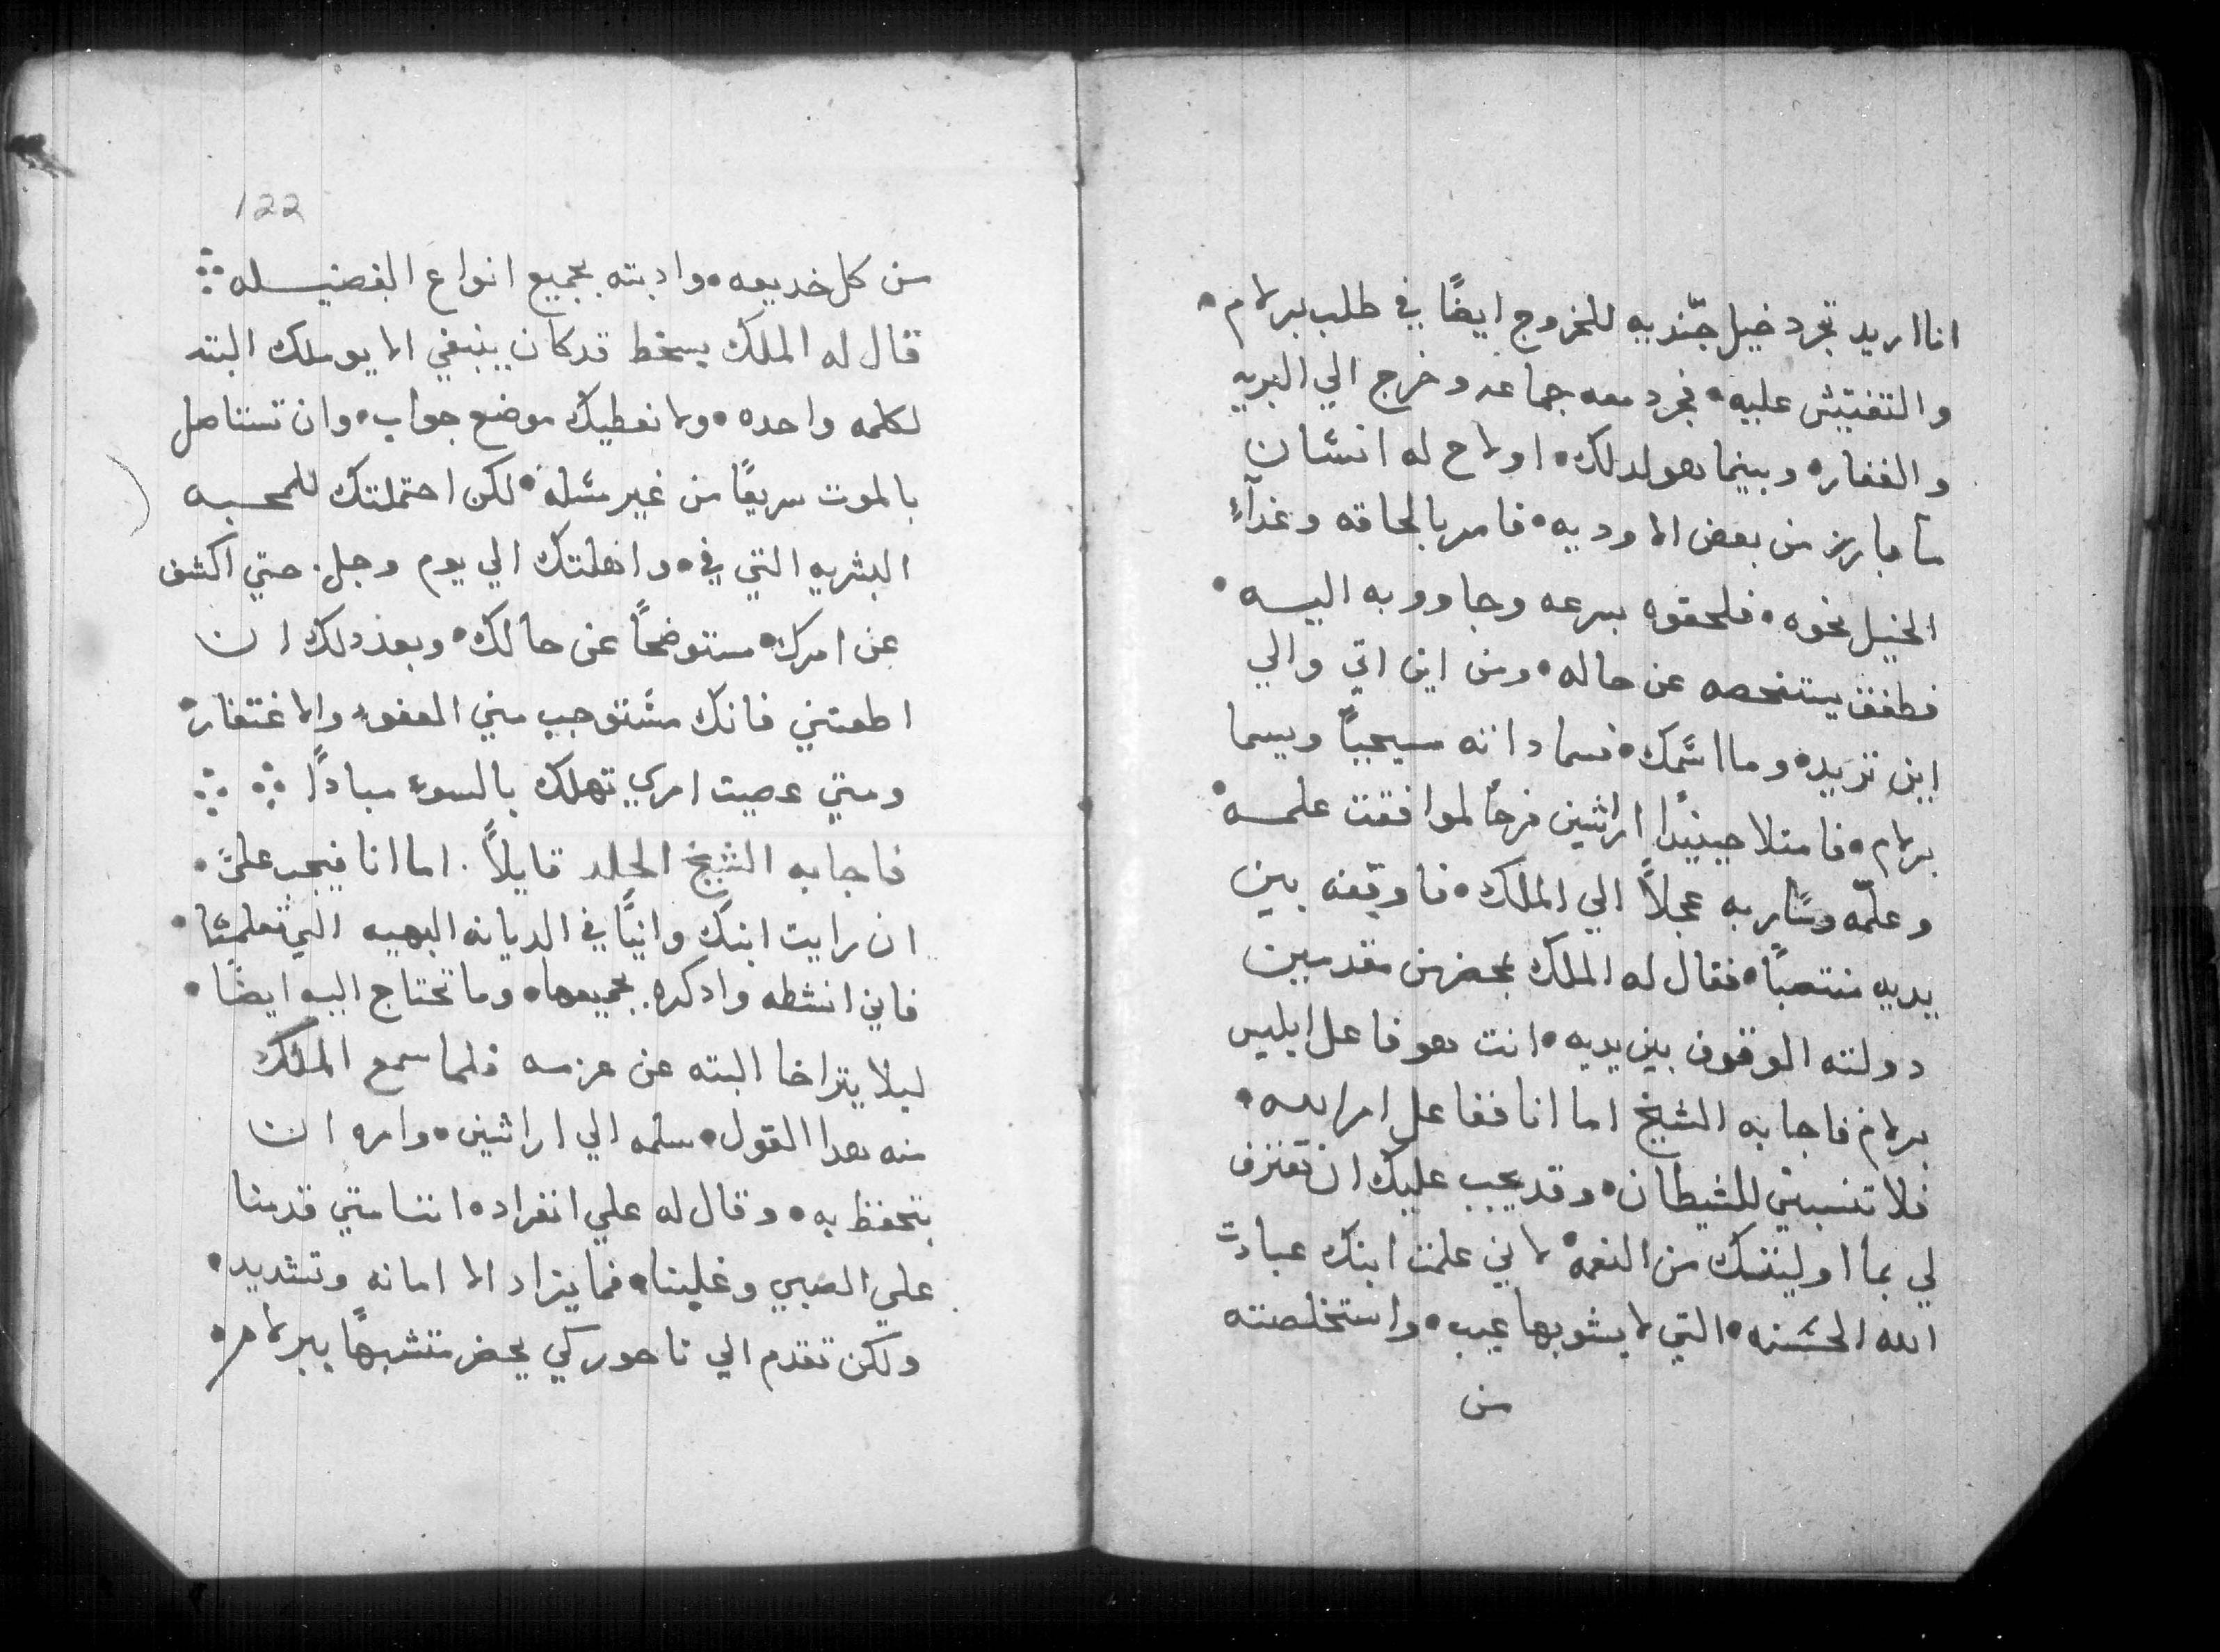 انا اريد تجرد خيل جنديه للخروج ايضًا في طلب برلام•
والتفتيش عليه• فجرد معه جماعه وخرج الي البريه
والقفار• وبينما هو لدلك• اولاح له انسان
ما بارز من بعض الاوديه• فامر بالحاقه وغدآء
الخيل نحوه• فلحقوه بسرعه وجاوو به اليه•
فطفق يستفحصه عن حاله• ومن اين اتي والي
اين تريد• وما اسمك• فسما دانه مسيحيًا ويسما
برلام• فامتلا حينيدًا اراشين فرحًا لموافقت علمه•
وعلمّه وسار به عجلاً الي الملك• فاوقفه بين
يديه منتصبًا• فقال له الملك بمحضر من مقدمين
دولته الوقوف بين يديه• انت هو فاعل ابليس
برلام فاجابه الشيخ اما انا ففاعل امر الله•
فلا تنسبني للشيطان• وقد يجب عليك ان تعترف
لي بما اوليتك من النعمه• لاني علمت ابنك عبادت
الله الحسنه• التي لا يشوبها عيب• واستخلصته
من
122
من كل خديعه• وادبته بجميع انواع الفضيله ⁘
قال له الملك بسخط قد كان ينبغي الا يوملك البته
لكلمه واحده• ولا نعطيك موضع جواب• وان تستاصل
بالموت سريعًا من غير مسله• لكن احتملتك للمحبه
البشريه التي في• وامهلتك الي يوم وجل. حتي اكشف
عن امرك• مستوضحًا عن حالك• وبعد دلك ان
اطعتني فانك مستوجب مني العفو• والاغتفار•
ومتي عصيت امري تهلك بالسوء مبادًا ⁘ ⁘
فاجابه الشيخ الجلد قايلاً. اما انا فيجب عليّ•
ان رايت ابنك وانيًا في الديانه البهيه التي تعلمها•
فاني انشطه وادكره بجميعها• وما تحتاج اليه ايضًا•
ليلا يتراخا البته عن عزمه فلما سمع الملك
منه هدا القول• سلمه الي اراشين• وامره ان
يتحفظ به• وقال له علي انفراده اننا متي قدمنا
علي الصبي وغلبنا• فما يزاد الا امانه وتشديد•
ولكن تقدم الي ناحور كي يحضر متشبهًا ببرلام•